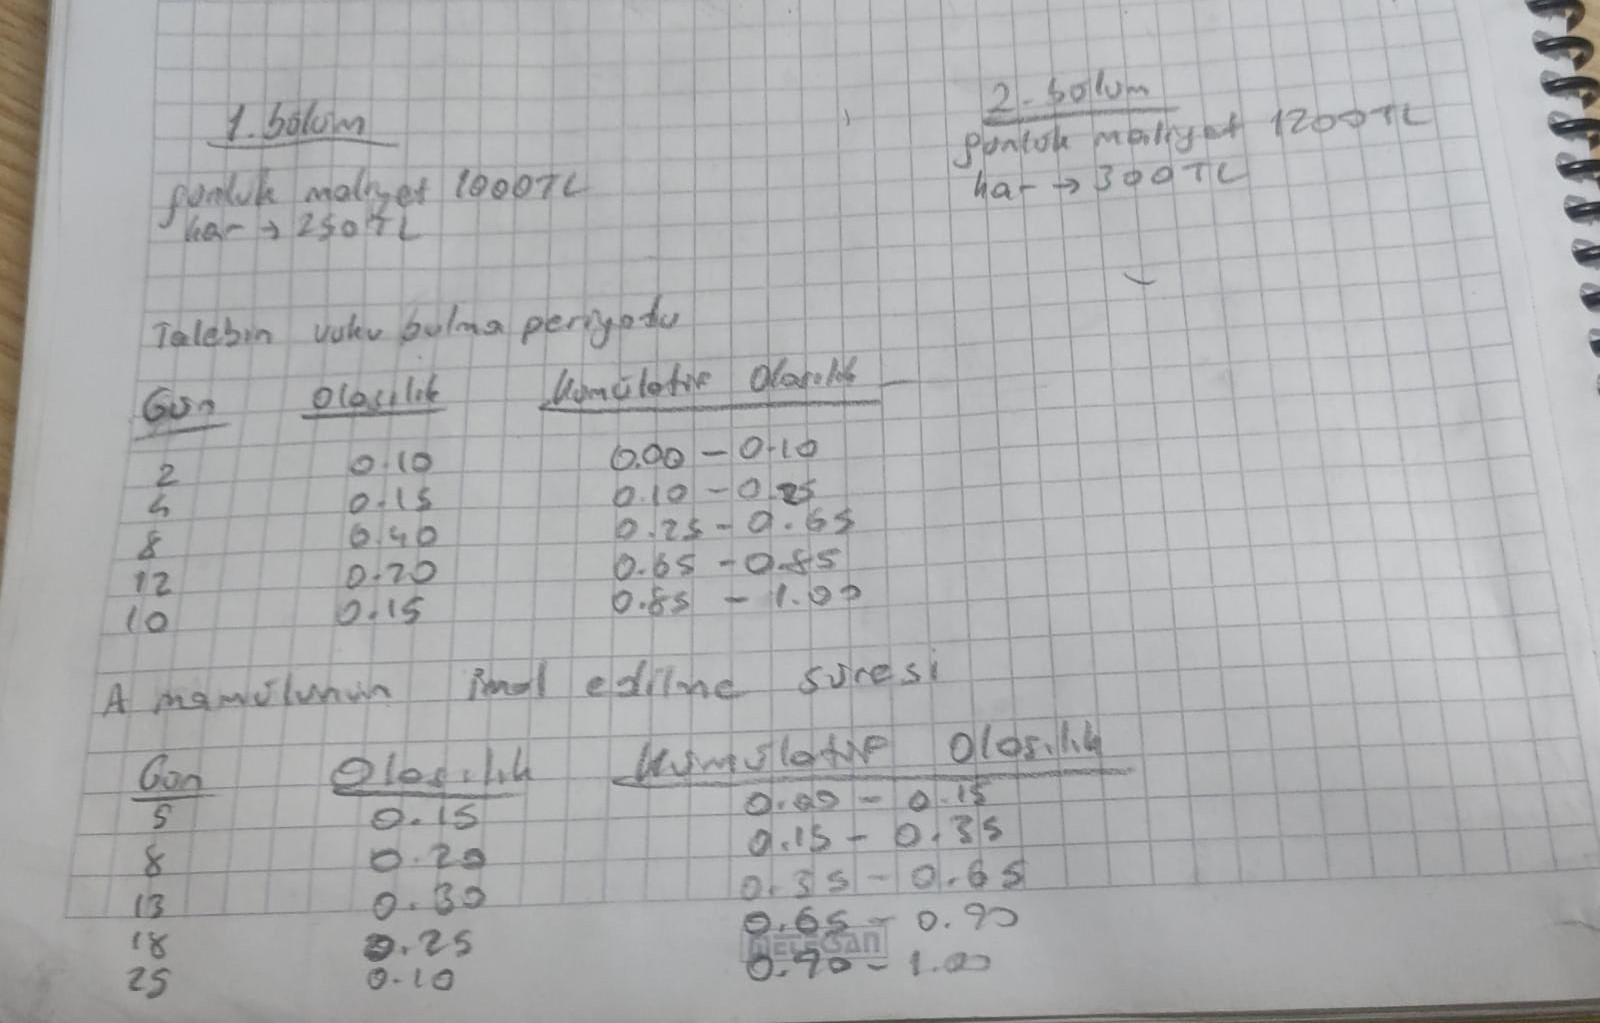 1. bölüm
günlük maliyet 1000TL
kar → 250TL
2. bölüm
günlük maliyet 1200TL
kar → 300TL
Talebin vuku bulma periyodu
Gün Olasılık Kümülatif Olasılık
2 0.10 0.00 - 0.10
4 0.15 0.10 - 0.25
8 0.40 0.25 - 0.65
12 0.20 0.65 - 0.85
10 0.15 0.85 - 1.00
A mamülünün imal edilme süresi
Gün Olasılık Kümülatif Olasılık
5 0.15 0.00 - 0.15
8 0.20 0.15 - 0.35
13 0.30 0.35 - 0.65
18 0.25 0.65 - 0.90
25 0.10 0.90 - 1.00